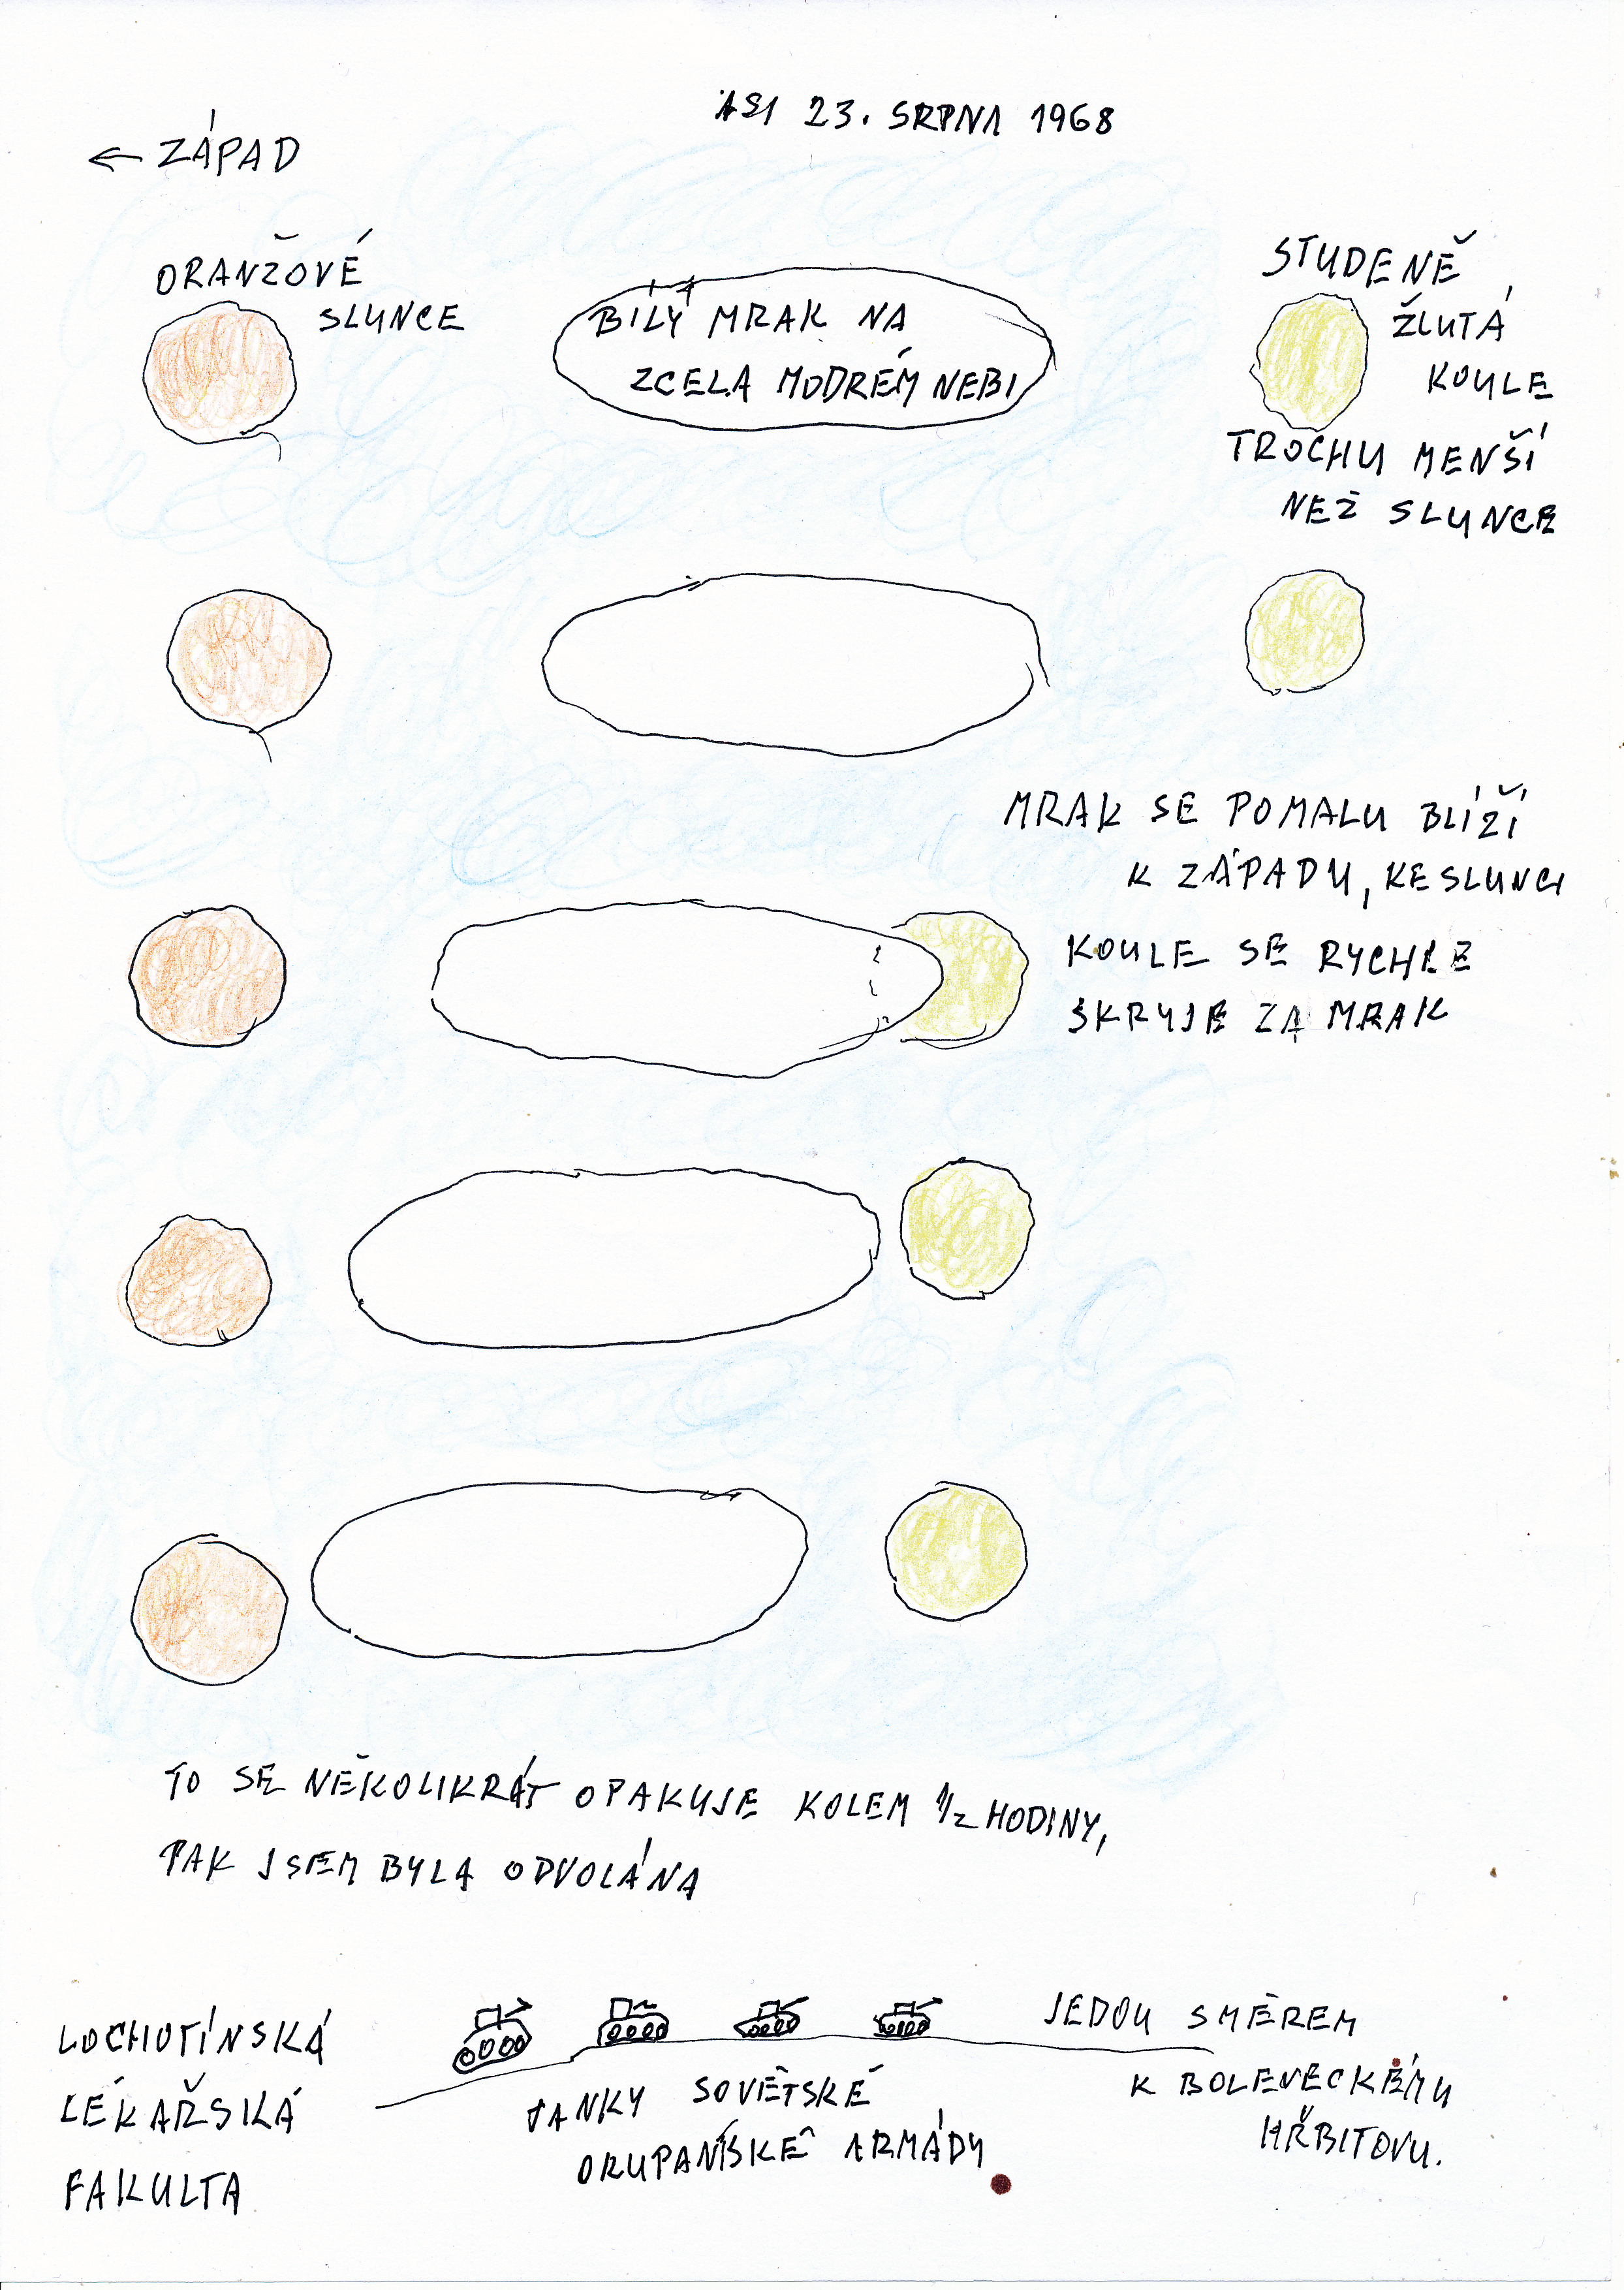 ASI 23. SRPNA 1968
← ZÁPAD
ORANŽOVÉ
SLUNCE
BÍLÝ MRAK NA
ZCELA MODRÉM NEBI
STUDENĚ
ŽLUTÁ
KOULE
TROCHU MENŠÍ
NEŽ SLUNCE
MRAK SE POMALU BLÍŽÍ
K ZÁPADU, KE SLUNCI
KOULE SE RYCHLE
SKRYJE ZA MRAK
TO SE NĚKOLIKRÁT OPAKUJE KOLEM 1/2 HODINY,
PAK JSEM BYLA ODVOLÁNA
LOCHOTÍNSKÁ
LÉKAŘSKÁ
FAKULTA
TANKY SOVĚTSKÉ
OKUPANTSKÉ ARMÁDY
JEDOU SMĚREM
K BOLEVECKÉMU
HŘBITOVU.